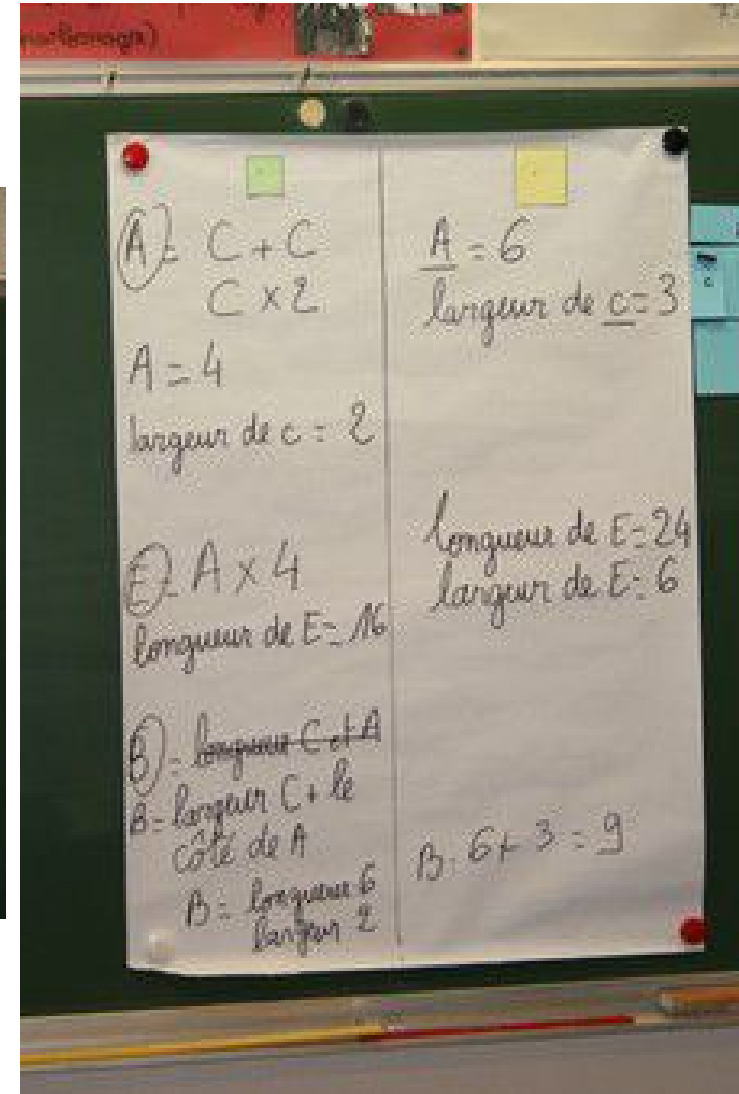 A = C + C
C x 2
A = 4
largeur de c = 2
E = A x 4
longueur de E = 16
B = longueur C et A
B = largeur C + le
côté de A
B = longueur 6
largeur 2
A = 6
largeur de c = 3
longueur de E = 24
largeur de E = 6
B = 6 + 3 = 9
C